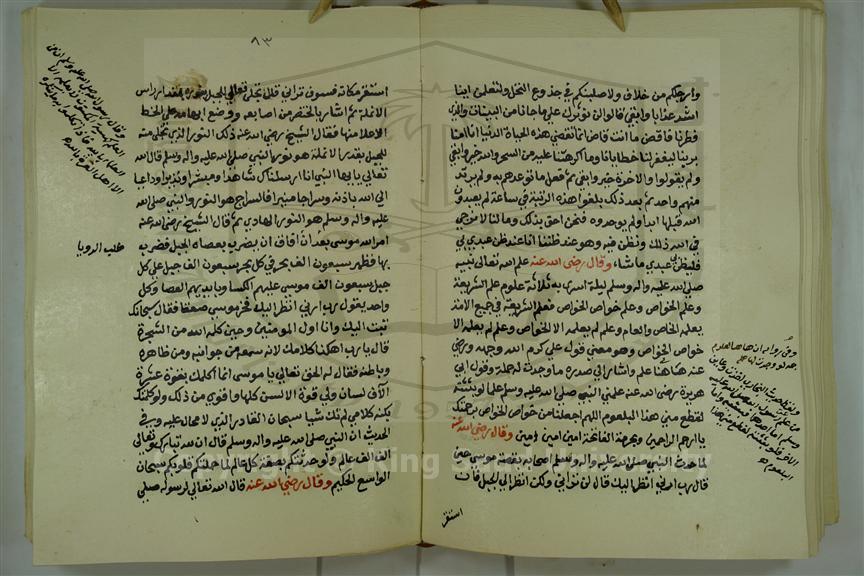 وارجلكم من خلاف ولاصلبنكم في جذوع النخل ولتعلمن اينا
اشد عذابا وابقى قالوا لن نؤثرك على ما جانا من البينات والذي
فطرنا فاقض ما انت قاض انما تقضي هذه الحياة الدنيا انا امنا
بربنا ليغفر لنا خطايانا وما اكرهتنا عليه من السحر والله خير وابقى
ولم يقولوا والاخرة خير وابقى ثم فعل ما توعدهم به ولم يرتد
منهم واحد ثم بعد ذلك بلغوا هذه الرتبة في ساعة لم يعبدون
الله قبلها ابدا ولم يوحدوه فنحن احق بذلك وما لنا لا نرجي
في الله ذلك ونظن فيه وهو عند ظننا انا عند ظن عبدي بي
فليظن بي عبدي ماشاء وقال رضي الله عنه علم الله تعالى نبيه
صلى الله عليه واله وسلم ليلة اسرى به ثلاثة علوم علم الشريعة
وعلم الخواص وعلم خواص الخواص فعلم الشريعة في جميع الامة
يعلمه الخاص والعام وعلم لم يعلمه الا الخواص وعلم لم يعلمه الا
خواص الخواص وهو معنى قول علي كرم الله وجهه ورضي
عنه هاهنا علم واشار الى صدره ما وجدت له حملة وقول ابي
هريرة رضي الله عنه علمني النبي صلى الله عليه وسلم علما لو بثثته
لقطع مني هذا البلعوم اللهم اجعلنا من خواص الخواص برحمتك
يا ارحم الراحمين وبحرمة الفاتحة امين امين امين وقال رضي الله عنه
لما حدث النبي صلى الله عليه واله وسلم اصحابه بقصة موسى حين
قال رب ارني انظر اليك قال لن تراني ولكن انظر الى الجبل فان
استقر
وفي رواية ان هاهنا لعلوم
٨٣
استقر مكانه فسوف تراني قال تجلى تعالى للجبل بمقدار راس
الانملة ثم اشار بالخنصر من اصابعه ووضع ابهامه على الخط
الاعلا منها فقال الشيخ رضي الله عنه ذلك النور الذي تجلى منه
للجبل بقدر الانملة هو نور النبي صلى الله عليه واله وسلم قال الله
تعالى يا ايها النبي انا ارسلناك شاهدا ومبشرا ونذيرا وداعيا
الى الله باذنه وسراجا منيرا فالسراج هو النور والنبي صلى الله
عليه واله وسلم هو النور الهادي ثم قال الشيخ رضي الله عنه
امر الله موسى بعد ان افاق ان يضرب بعصاه الجبل فضرب
بها فظهر سبعون الف بحر في كل بحر سبعون الف جبل على كل
جبل سبعون الف موسى عليهم الكسا وبايديهم العصا وكل
واحد يقول رب ارني انظر اليك فخر موسى صعقا فقال سبحانك
تبت اليك وانا اول المومنين وحين كلمه الله من الشجرة
قال يارب اهكذا كلامك لانه سمعه من جوانبه ومن ظاهره
وباطنه فقال له الحق تعالى يا موسى انما اكلمك بقوة عشرة
الاف لسان ولي قوة الالسن كلها واقوى من ذلك ولو كلمتك
بكنه كلامي لم تك شيا سبحان القادر الذي لا محال عليه وفي
الحديث ان النبي صلى الله عليه واله وسلم قال ان لله تبارك وتعالى
الف الف عالم لو حدثتكم بصفة كل عالم ما حملتكم قلوبكم سبحان
الواسع الحكيم وقال رضي الله عنه قال الله تعالى لرسوله صلى
طلب الرويا
وقال رسول الله صلى الله عليه وسلم ان من
Copyright © King Saud University
1957